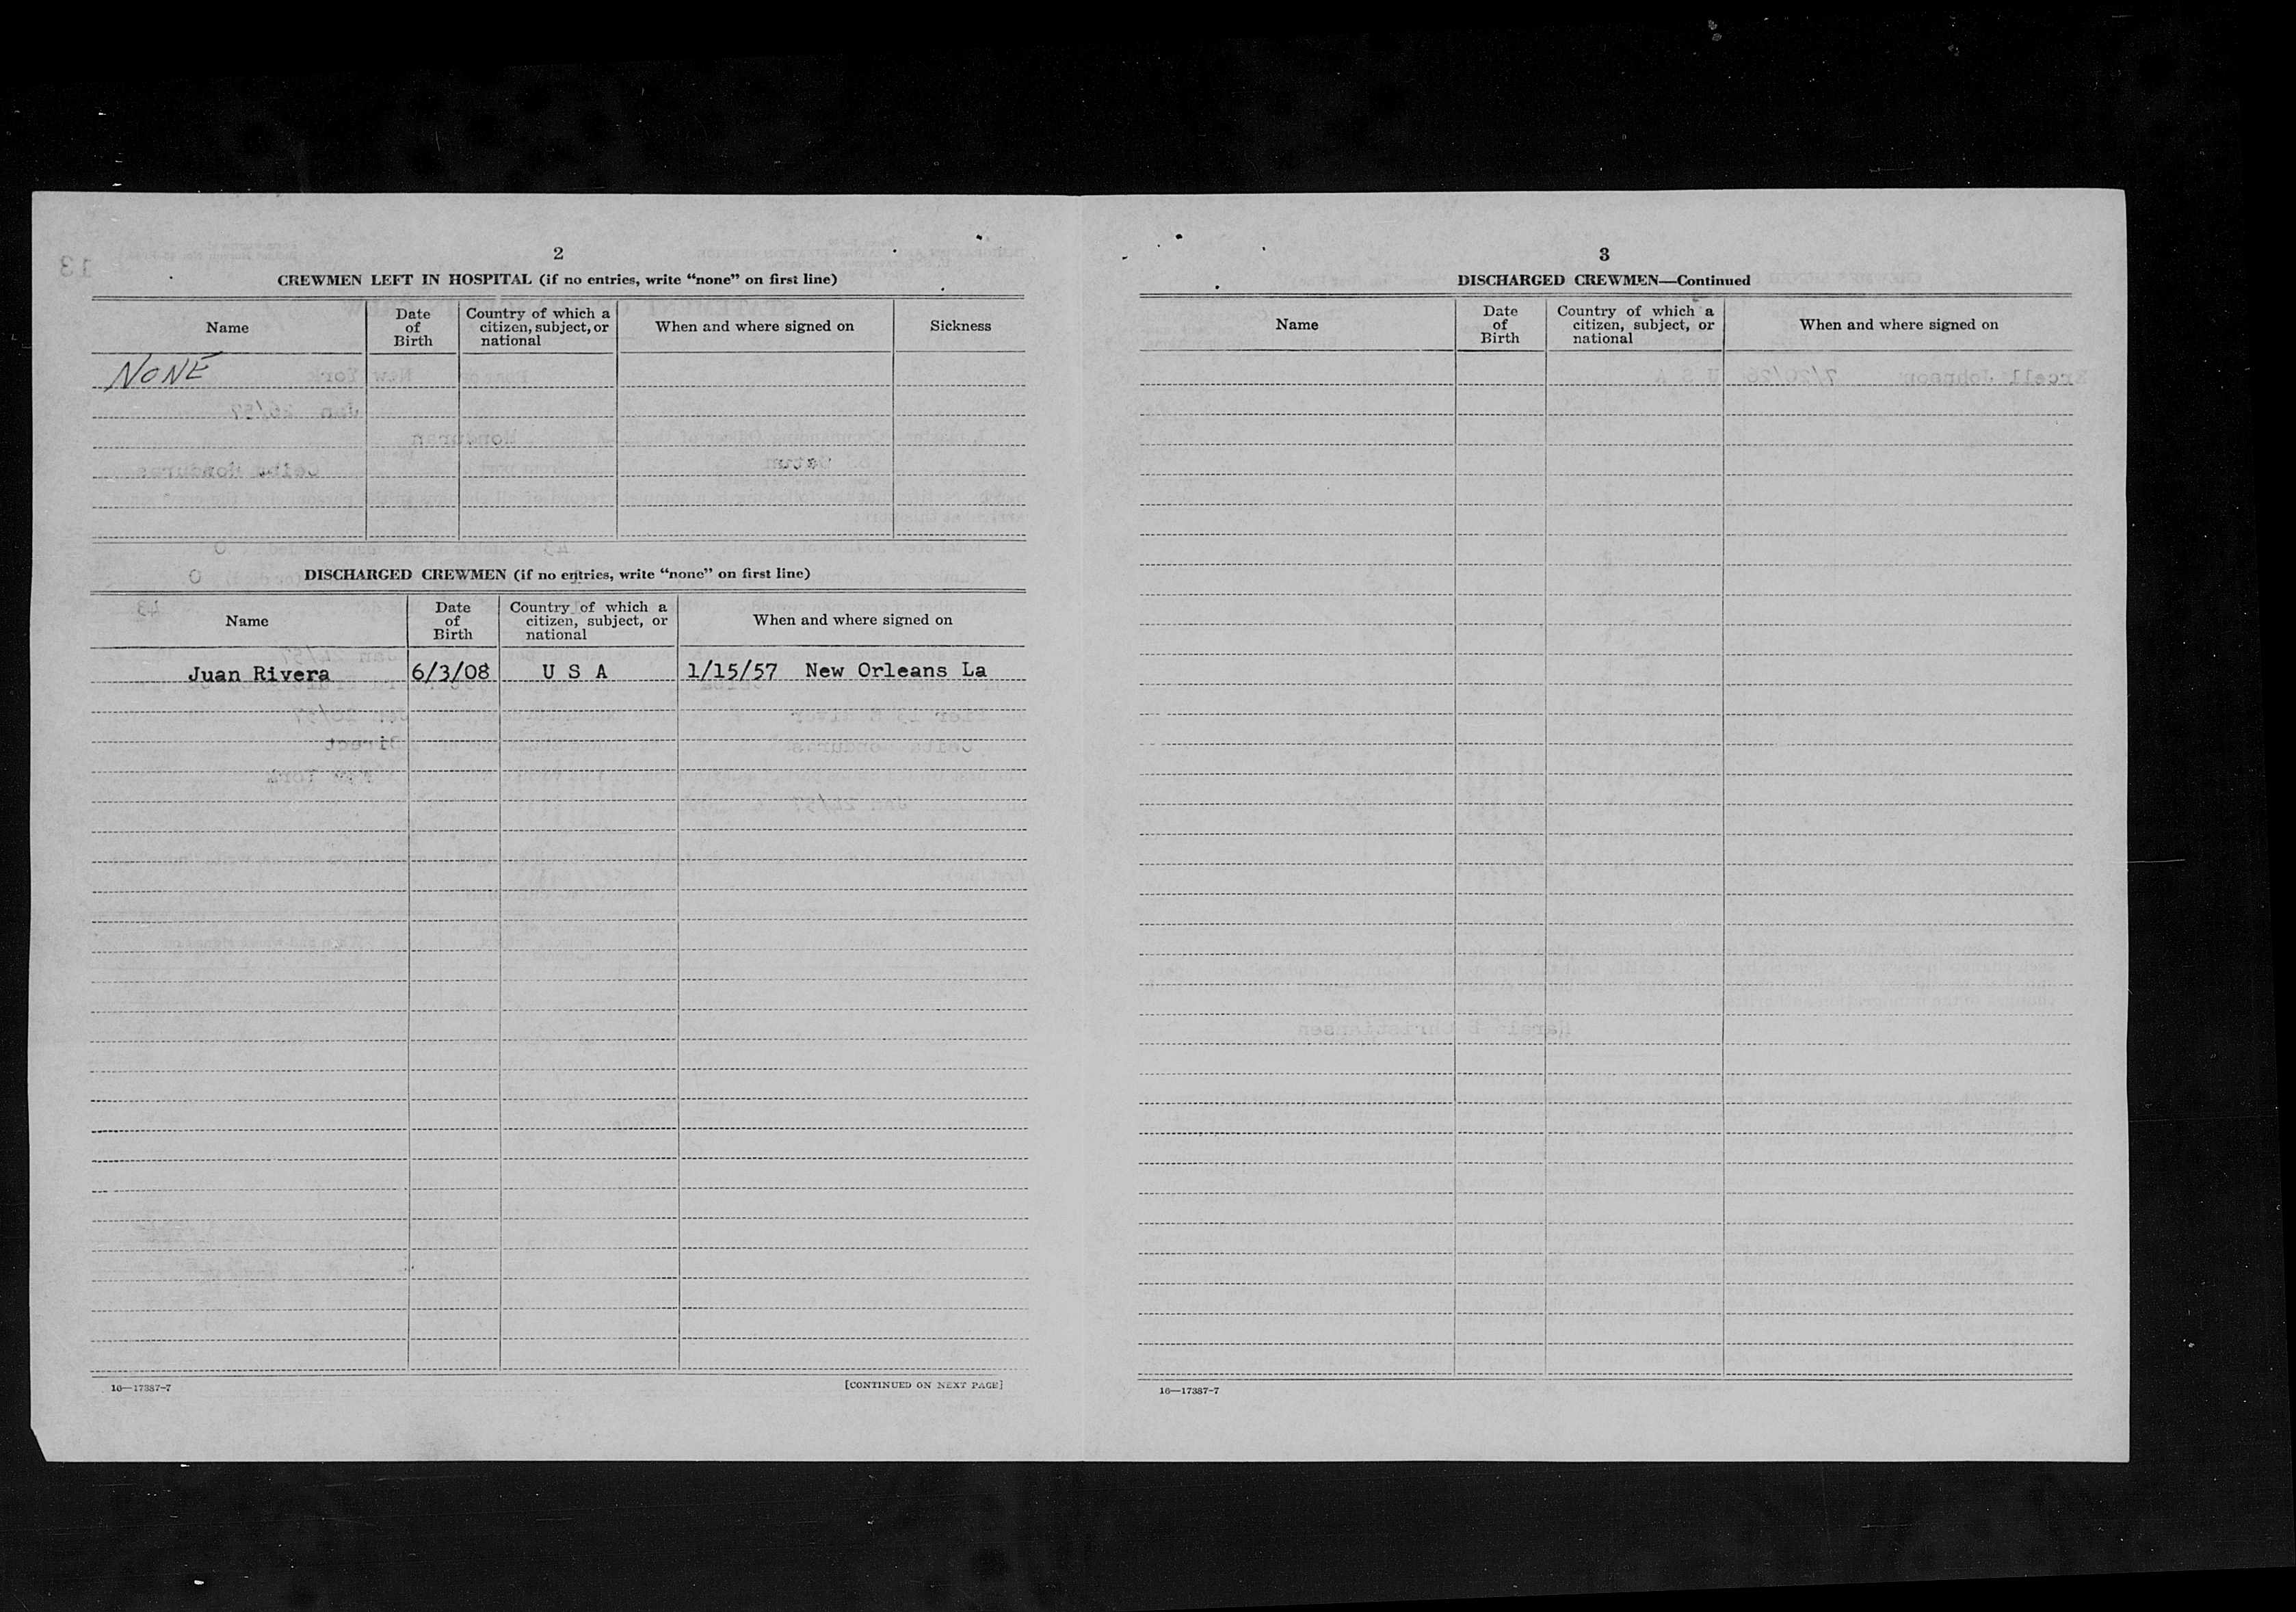 2
CREWMEN LEFT IN HOSPITAL (if no entries, write “none” on first line)
Name
Date of Birth
Country of which a citizen, subject, or national
When and where signed on
Sickness
NONE
DISCHARGED CREWMEN (if no entries, write “none” on first line)
Name
Date of Birth
Country of which a citizen, subject, or national
When and where signed on
Juan Rivera 6/3/08 U S A 1/15/57 New Orleans La
16—17387-7
[CONTINUED ON NEXT PAGE]
3
DISCHARGED CREWMEN—Continued
Name
Date of Birth
Country of which a citizen, subject, or national
When and where signed on
16—17387-7